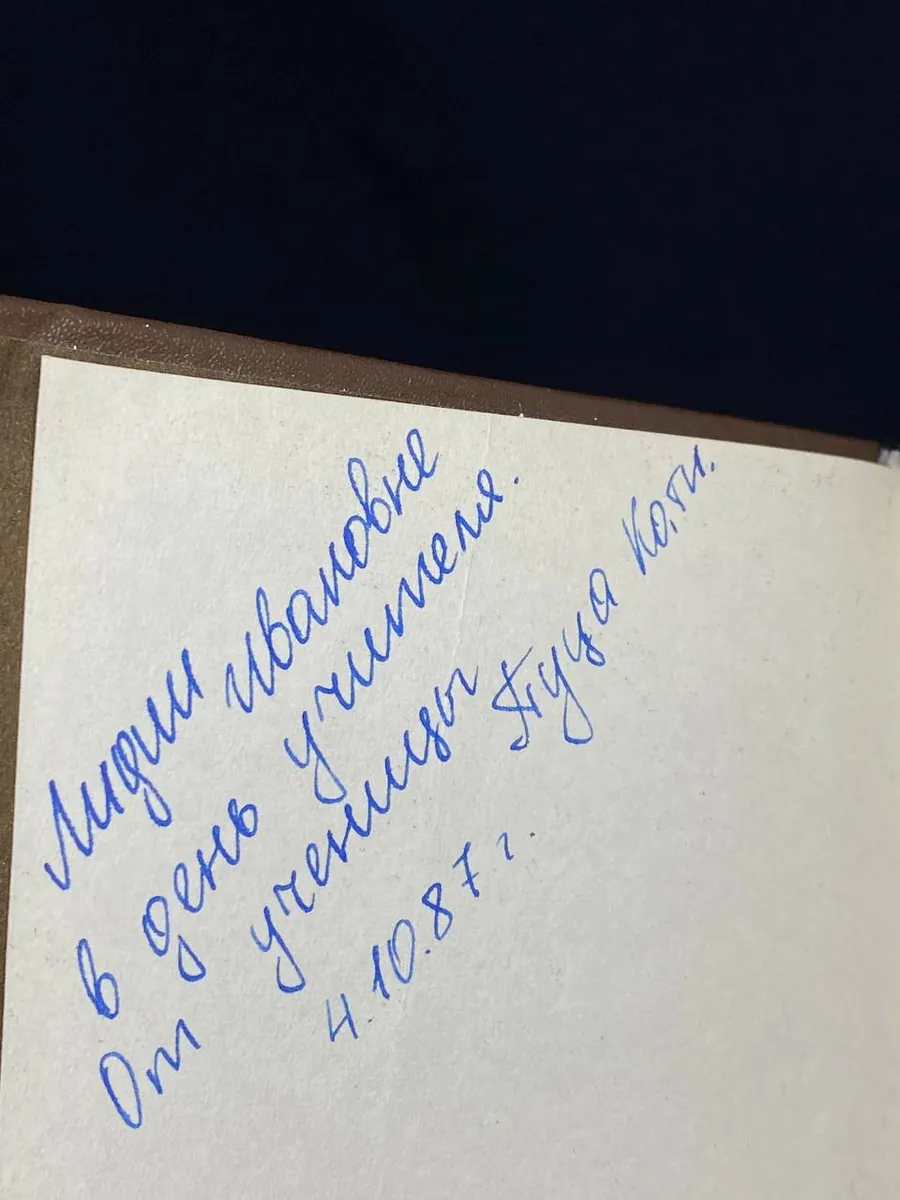 Лидии Ивановне
в день учителя.
От ученицы Пуца Кати.
4.10.87 г.